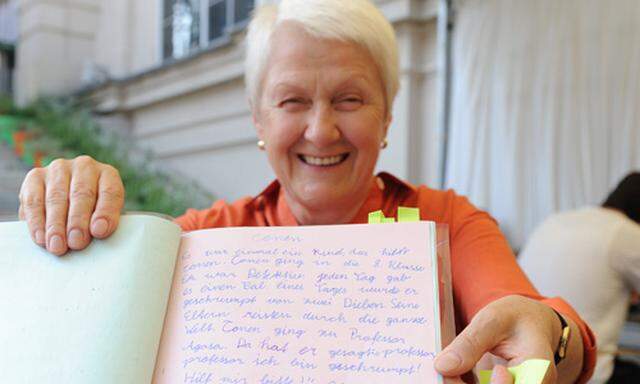 Conen
Es war einmal ein Kind, das hieß
Conen. Conen ging in die 8. Klasse
Er war Detektiv. jeden Tag gab
es einen Fal. Eines Tages wurde er
geschrumpt von zwei Dieben. Seine
Eltern reisten durch die ganze
Welt. Conen ging zu Professor
Agasa. Da hat er gesagt: professor
professor ich bin geschrumpt!
Hilf mir bitte!!!